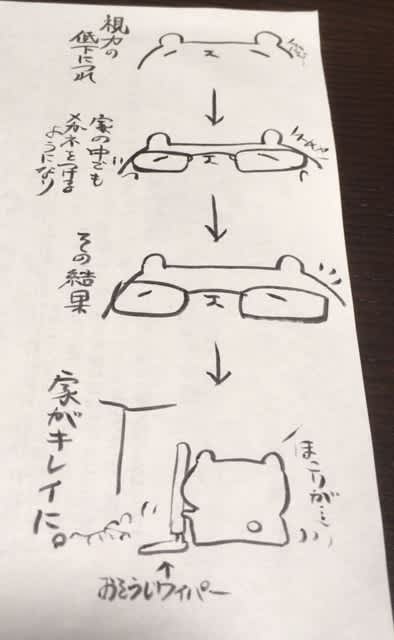 視力の
低下につれ
家の中でも
メガネをつける
ようになり
その結果
家がキレイに。
ほこりが…
おそうじワイパー